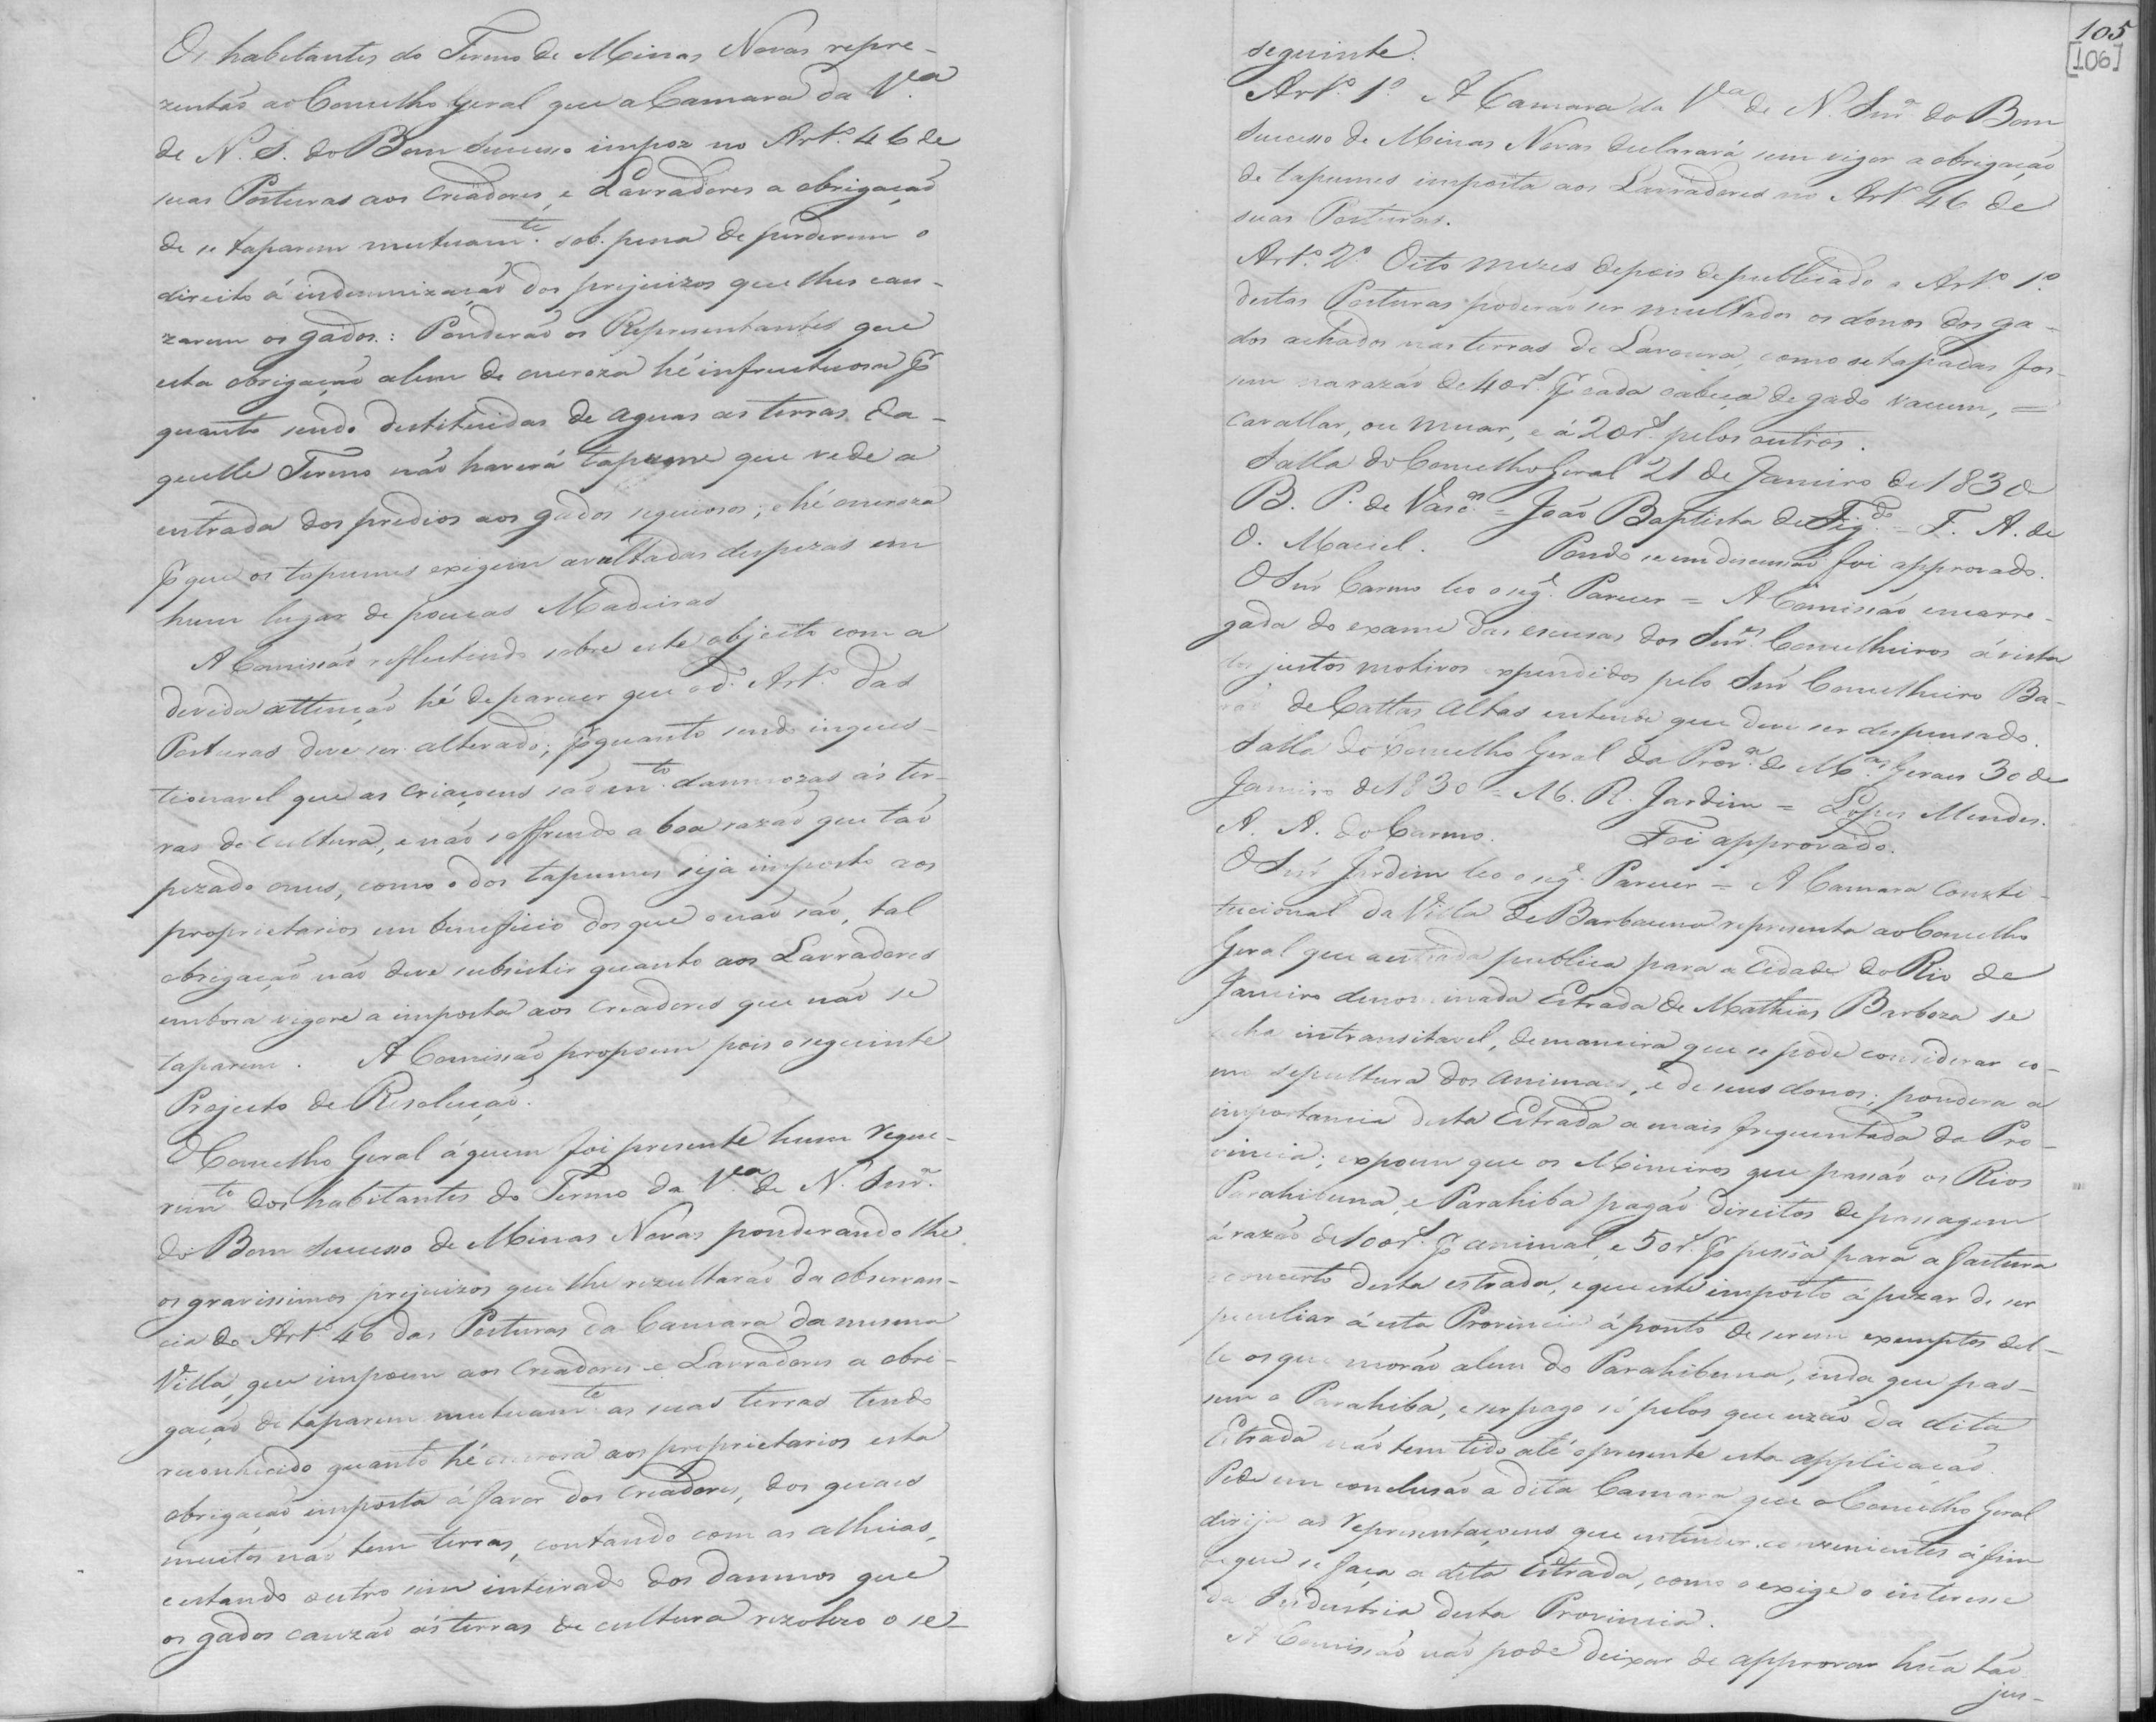 Os habitantes do Termo de Minas Novas repre-
zentão ao Conselho Geral que a Camara da V.ª
de N. S. do Bom Sucesso impoz no Art.º 46 de
suas Posturas aos Creadores, e Lavradores a obrigação
de se taparem mutuam.te sob. pena de perderem o
direito á indemnização dos prejuizos que lhes cau-
zarem os gados: Ponderão os Representantes que
esta obrigação alem de oneroza hé infructuosa p
quanto sendo destituidas de aguas as terras da-
quelle Termo não haverá tapume que vede a
entrada dos predios aos gados sequiosos; e hé oneroza
pque os tapumes exigem avultadas despezas em
hum lugar de poucas Madeiras
A Comissão reflectindo sobre este objecto com a
devida attenção hé de parecer que o d.º Art.º das
Posturas deve ser alterado; pquanto sendo inques-
tionavel que as criaçoens são m.to damnozas ás ter-
ras de cultura, e não soffrendo a boa razão que tão
pezado onus, como o dos tapumes seja imposto aos
proprietarios em beneficio dos que o não são, tal
obrigação não deve subsistir quanto aos Lavradores
embora vigore a imposta aos Creadores que não se
taparem. A Comissão propoem pois o seguinte
Projecto de Resolução.
O Conselho Geral á quem foi presente hum reque-
rim.to dos habitantes do Termo da V.ª de N. Snr.ª
do Bom Sucesso de Minas Novas ponderando lhe
os gravissimos prejuizos que lhe rezultarão da observan-
cia do Art.º 46 das Posturas da Camara da mesma
Villa, que impoem aos Creadores e Lavradores a obri-
gação de taparem mutuam.te as suas terras tendo
reconhecido quanto hé onerosa aos proprietarios esta
obrigação imposta á favor dos Creadores, dos quaes
muitos não tem terras, contando com as alheias,
e estando outro sim inteirado dos damnos que
os gados cauzão ás terras de cultura rezolveo o se-
105
[106]
seguinte.
Art.º 1º A Camara da V.ª de N. Snrª do Bom
Sucesso de Minas Novas declarará sem vigor a obrigação
de tapumes imposta aos Lavradores no Art.º 46 de
suas Posturas.
Art.º 2º Oito mezes depois de publicado o Art.º 1º
destas Posturas poderão ser multados os donos dos ga-
dos achados nas terras de Lavoura, como se tapadas fos-
sem na razão de 40r.s p cada cabeça de gado vacum, =
Cavallar, ou Muar, e á 20r.s pelos outros.
Salla do Conselho Geral 21 de Janeiro de 1830
B. P. de Vasc.os = João Baptista de Fig.do = F. A. de
O. Maciel. Pondo se em discussão foi approvado.
O Snr Carmo leo o seg.e Parecer = A Comissão encarre-
gada do exame das escusas dos Snr.es Conselheiros á vista
dos justos motivos expendidos pelo Snr Conselheiro Ba-
rão de Cattas Altas entende que deve ser dispensado.
Salla do Conselho Geral da Prov.ª de M.as Geraes 30 de
Janeiro de 1830 = M. R. Jardim = Lopes Mendes.
A. A. do Carmo. Foi approvado.
O Snr Jardim leo o seg.e Parecer = A Camara Consti-
tucional da Villa de Barbacena representa ao Conselho
Geral que a estrada publica para a Cidade do Rio de
Janeiro denominada Estrada de Mathias Barboza se
acha intransitavel, de maneira que se póde considerar co-
mo sepultura dos animaes, e de seus donos; pondera a
importancia desta Estrada a mais frequentada da Pro-
vincia; expoem que os Mineiros que passão os Rios
Parahibuna, e Parahiba pagão direitos de passagem
á razão de 100r.s p animal, e 50r.s p pessoa para a factura
e concerto desta estrada, e que este imposto á pezar de ser
peculiar á esta Provincia á ponto de serem exemptos del-
le os que morão alem do Parahibuna, inda que pas-
sem o Parahiba, e ser pago só pelos que uzão da dita
Estrada não tem tido até o presente esta applicação
Pede em conclusão a dita Camara que o Conselho Geral
dirija as representaçoens que entender convenientes á fim
de que se faça a dita Estrada, como o exige o interesse
da Industria desta Provincia.
A Comissão não póde deixar de approvar hũa tão
jus-